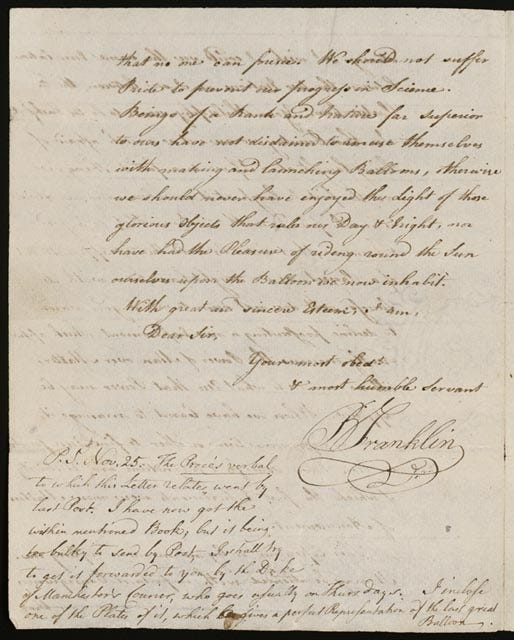 that no one can foresee. We should not suffer
Pride to prevent our progress in Science.
Beings of a Rank and Nature far superior
to ours have not disdained to amuse themselves
with making and launching Balloons, otherwise
we should never have enjoyed the Light of those
glorious Objects that rule our Day & Night, nor
have had the Pleasure of riding round the Sun
ourselves upon the Balloon we now inhabit.
With great and sincere Esteem, I am,
Dear Sir,
Your most obedt
& most humble Servant
B Franklin
P.S. Nov. 25. The Procès verbal
to which this Letter relates, went by
last Post. I have now got the
within mentioned Book, but it being
too bulky to send by Post, I shall try
to get it forwarded to you by the Duke
of Manchester's Courier, who goes usually on Thursdays. I inclose
one of the Plates of it, which gives a perfect Representation of the last great
Balloon.